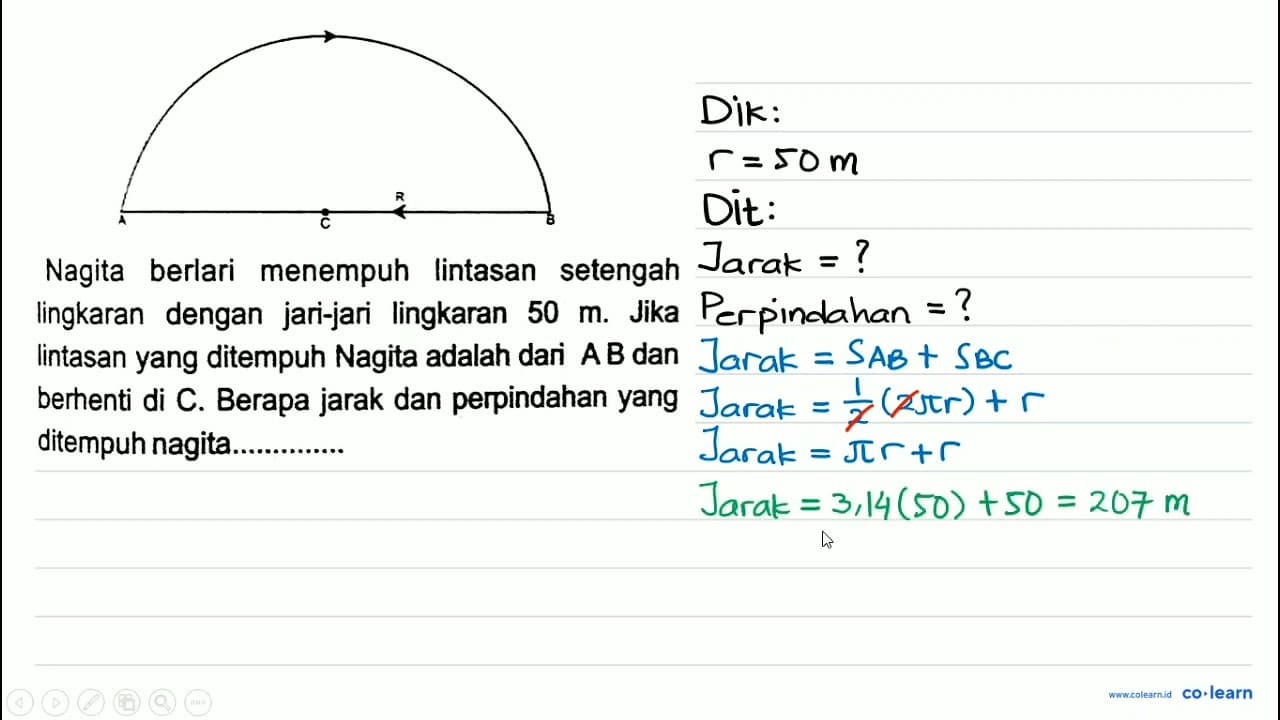 R
A
C
B
Nagita berlari menempuh lintasan setengah
lingkaran dengan jari-jari lingkaran 50 m. Jika
lintasan yang ditempuh Nagita adalah dari A B dan
berhenti di C. Berapa jarak dan perpindahan yang
ditempuh nagita..............
Dik:
r = 50 m
Dit:
Jarak = ?
Perpindahan = ?
Jarak = SAB + SBC
Jarak = 1/2 (2πr) + r
Jarak = πr + r
Jarak = 3,14(50) + 50 = 207 m
www.colearn.id co·learn